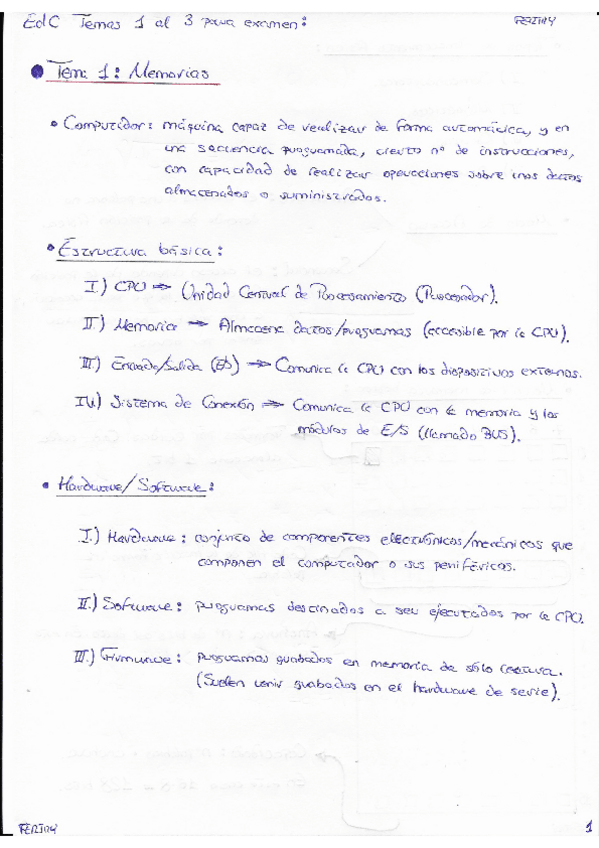 EdC Temas 1 al 3 para examen:
FERIRY
Tema 1: Memorias
• Computador: máquina capaz de realizar de forma automática, y en
una secuencia programada, cierto nº de instrucciones,
con capacidad de realizar operaciones sobre unos datos
almacenados o suministrados.
• Estructura básica:
I.) CPU ⇒ Unidad Central de Procesamiento (Procesador).
II.) Memoria ⇒ Almacena datos/programas (accesible por la CPU).
III.) Entrada/Salida (E/S) ⇒ Comunica la CPU con los dispositivos externos.
IV.) Sistema de Conexión ⇒ Comunica la CPU con la memoria y los
módulos de E/S (llamado BUS).
• Hardware/Software:
I.) Hardware: conjunto de componentes electrónicos/mecánicos que
componen el computador o sus periféricos.
II.) Software: programas destinados a ser ejecutados por la CPU.
III.) Firmware: programas grabados en memoria de sólo lectura.
(Suelen venir grabados en el hardware de serie).
FERIRY
1